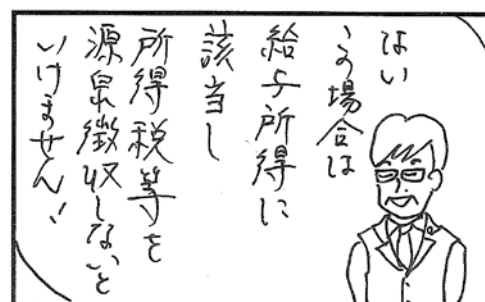 はい
この場合は
給与所得に
該当し
所得税等を
源泉徴収しないと
いけません!